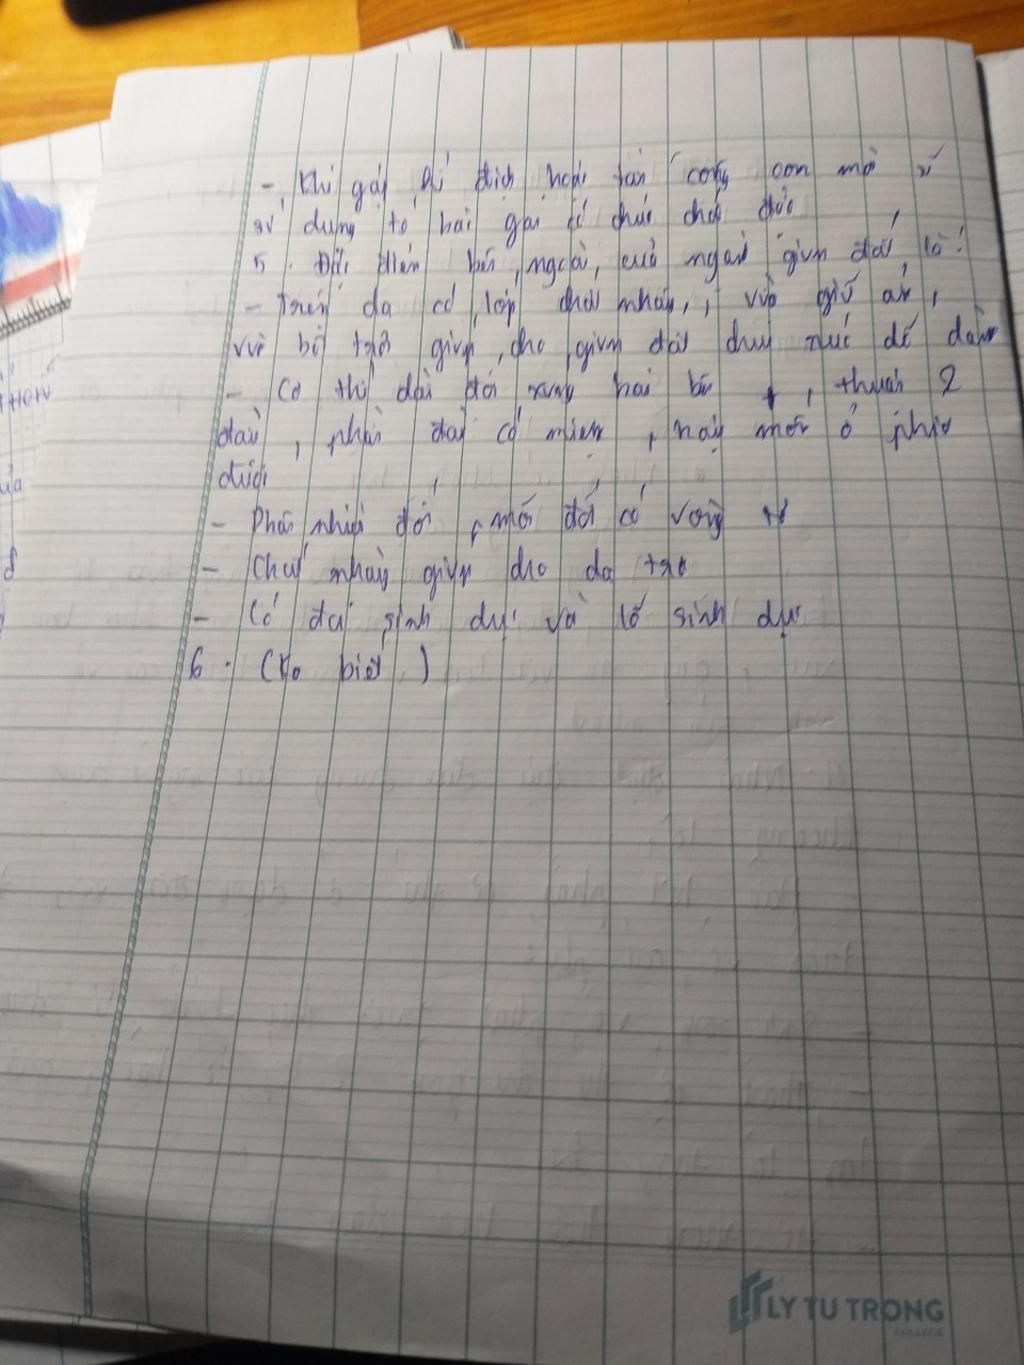 - Khi gặp kẻ địch hoặc tấn công con mồi sẽ
sử dụng tế bào gai có chức chất độc
5. Đặc điểm bên ngoài của ngành giun đốt là:
- Trên da có lớp chất nhày, vừa giữ ẩm,
vừa bôi trơn giun, cho giun đất chui rúc dễ dàng
- Cơ thể dài đối xứng hai bên, thuôn 2
đầu, phần đầu có miệng, nằm ở phía
dưới
- Phân nhiều đốt, mỗi đốt có vòng tơ
- Chất nhày giúp cho da trơn
- Có đai sinh dục và lỗ sinh dục
6. (Ko biết)
LY TU TRONG